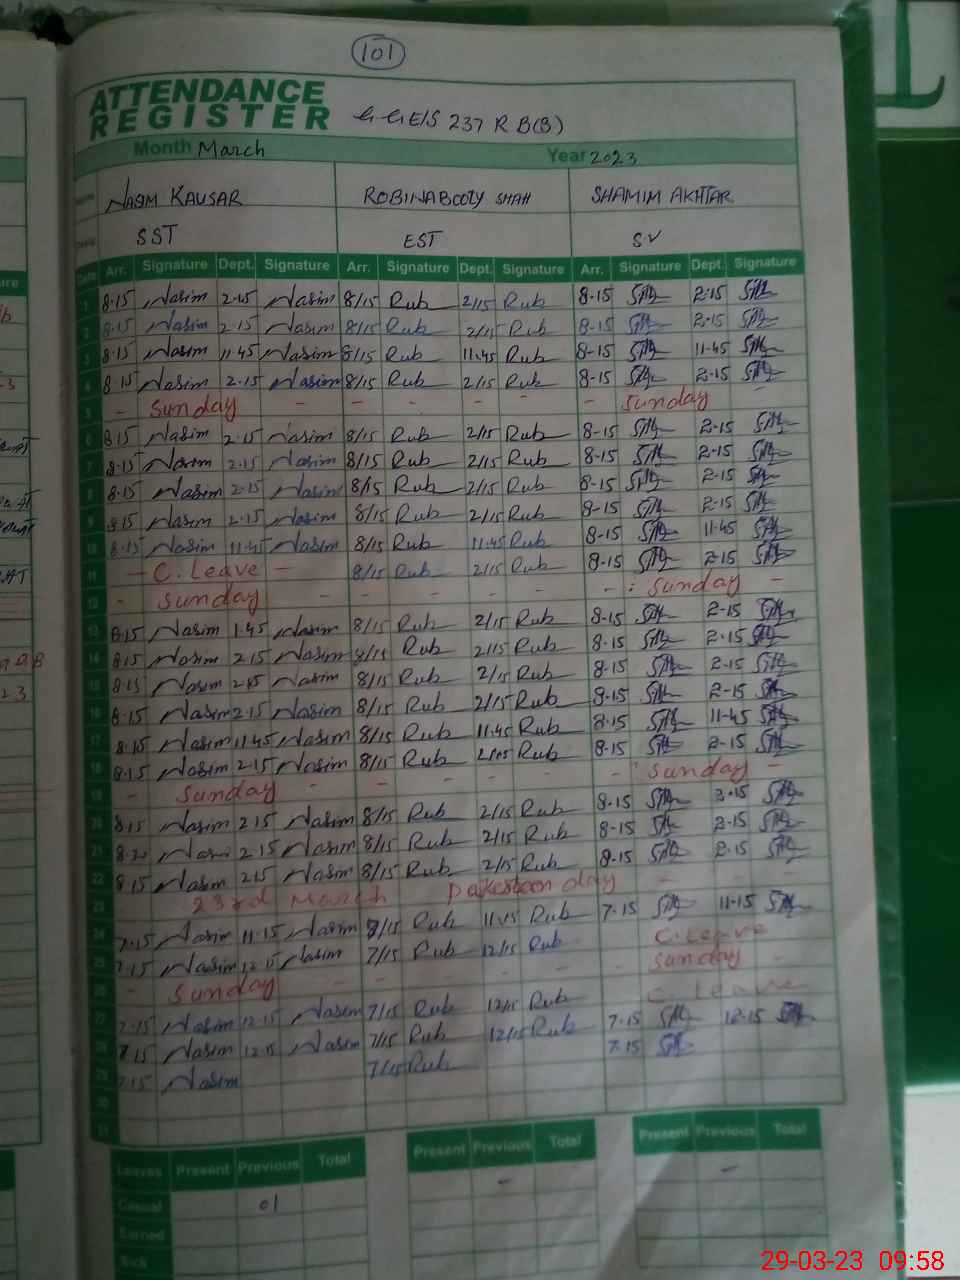 101
ATTENDANCE
REGISTER GGE/S 237 R B(B)
Month March Year 2023
NASIM KAUSAR ROBINABOOTY SHAH SHAMIM AKHTAR
SST EST SV
Date Arr. Signature Dept. Signature Arr. Signature Dept. Signature Arr. Signature Dept. Signature
1 8-15 Nasim 2-15 Nasim 8/15 Rub 2/15 Rub 8-15 2-15
2 8-15 Nasim 2-15 Nasim 8/15 Rub 2/15 Rub 8-15 2-15
3 8-15 Nasim 11-45 Nasim 8/15 Rub 11.45 Rub 8-15 11-45
4 8-15 Nasim 2-15 Nasim 8/15 Rub 2/15 Rub 8-15 2-15
5 - Sunday - - - - - - - Sunday -
6 8.15 Nasim 2-15 Nasim 8/15 Rub 2/15 Rub 8-15 2-15
7 8-15 Nasim 2-15 Nasim 8/15 Rub 2/15 Rub 8-15 2-15
8 8-15 Nasim 2-15 Nasim 8/15 Rub 2/15 Rub 8-15 2-15
9 8.15 Nasim 2-15 Nasim 8/15 Rub 2/15 Rub 8-15 2-15
10 8-15 Nasim 11-45 Nasim 8/15 Rub 11.45 Rub 8-15 11-45
11 - C. Leave - 8/15 Rub 2/15 Rub 8-15 2-15
12 - Sunday - - - - - - - Sunday -
13 8.15 Nasim 1.45 Nasim 8/15 Rub 2/15 Rub 8-15 2-15
14 8.15 Nasim 2.15 Nasim Rub 2/15 Rub 8-15 2-15
15 8-15 Nasim 2.15 Nasim 8/15 Rub 2/15 Rub 8-15 2-15
16 8-15 Nasim 2-15 Nasim 8/15 Rub 2/15 Rub 8-15 2-15
17 8-15 Nasim 11.45 Nasim 8/15 Rub 11.45 Rub 8-15 11-45
18 8-15 Nasim 2-15 Nasim 8/15 Rub Rub 8-15 2-15
19 - Sunday - - - - - - - Sunday -
20 8.15 Nasim 2.15 Nasim 8/15 Rub 2/15 Rub 8-15 2-15
21 2.15 Nasim 8/15 Rub 2/15 Rub 8-15 2-15
22 8.15 Nasim 2.15 Nasim 8/15 Rub 2/15 Rub 8-15 2-15
23 23rd March day - - -
24 7.15 Nasim 11-15 Nasim Rub Rub 7-15 11-15
25 7.15 Nasim 12.15 Nasim 7/15 Rub 12/15 Rub C. Leave
26 - Sunday - - - - - - - Sunday -
27 7-15 Nasim 12-15 Nasim 7/15 Rub 12/15 Rub C. Leave
28 7.15 Nasim 12.15 Nasim 7/15 Rub 12/15 Rub 7-15 12-15
29 7.15 Nasim 7/15 Rub 7-15
30
31
Leaves Present Previous Total Present Previous Total Present Previous Total
Casual 01 - -
Earned
Sick
29-03-23 09:58